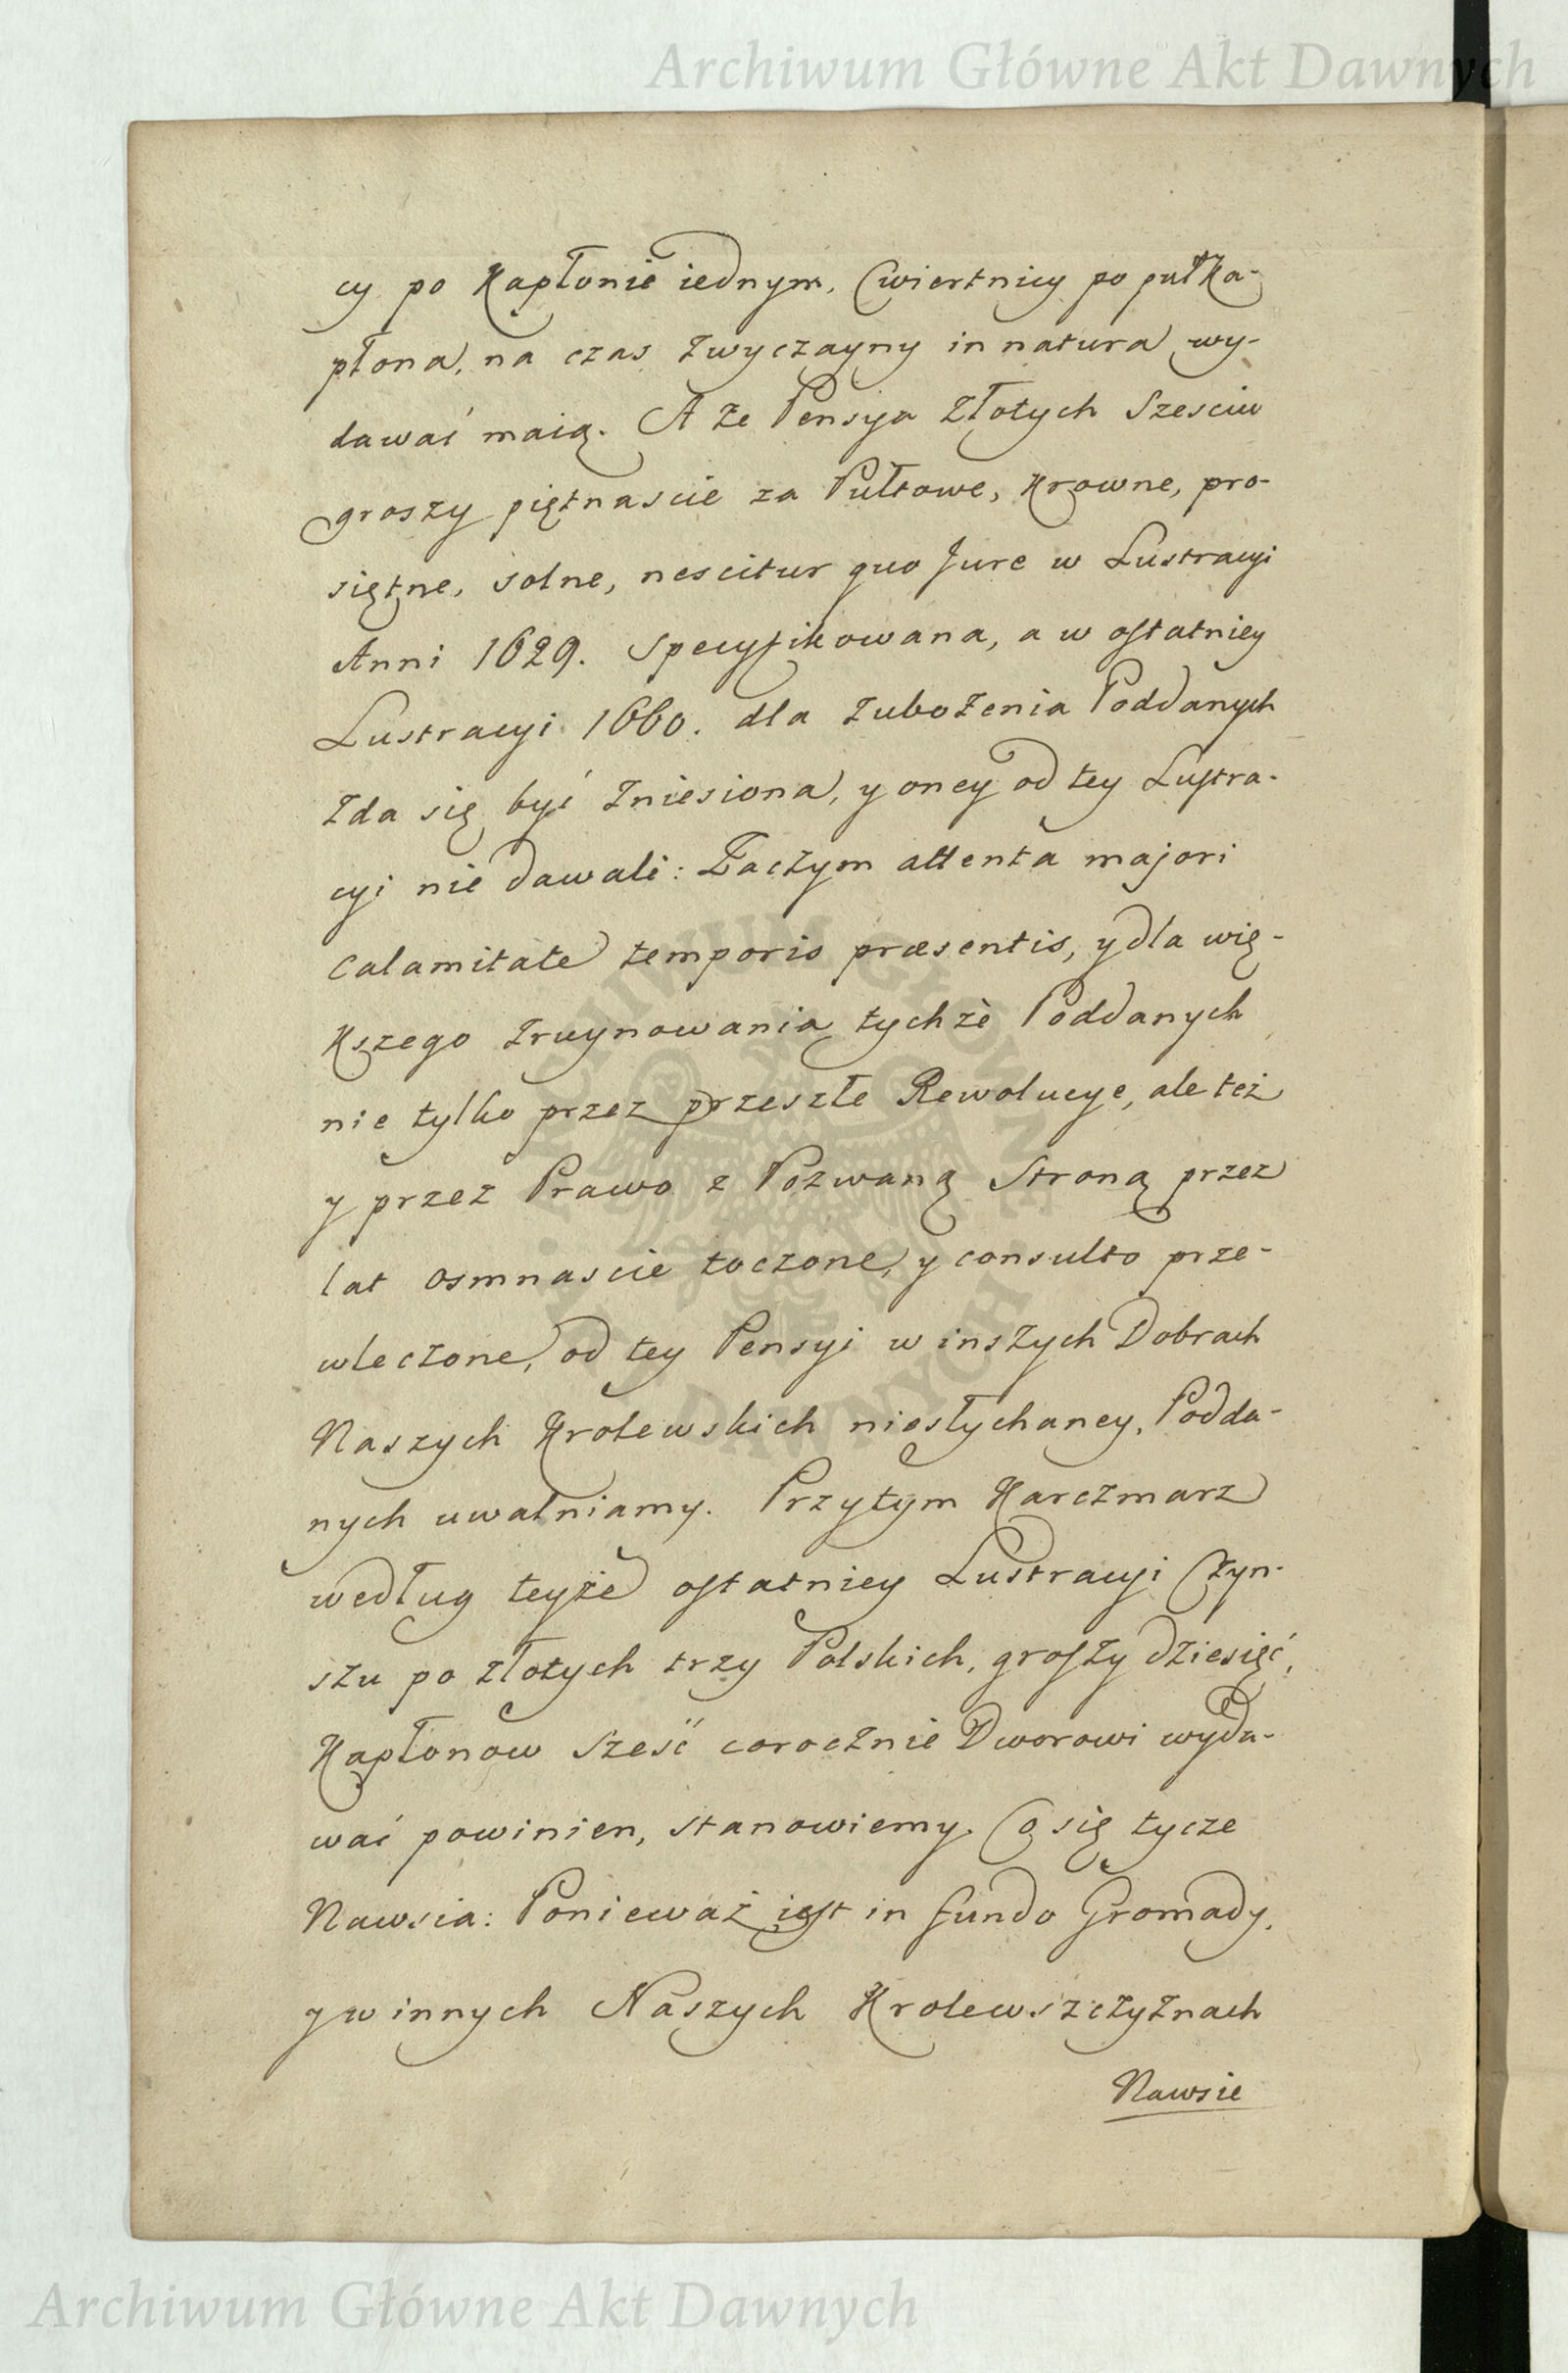 Archiwum Główne Akt Dawnych
cy po Kapłonie iednym, Cwiertnicy po pułka-
płona, na czas zwyczayny in natura wy-
dawać maią. A że Pensya złotych Szesciu
groszy piętnascie za Pułtowe, Krowne, pro-
siętne, solne, nescitur quo Jure w Lustracyi
Anni 1629. Specyfikowana, a w ostatniey
Lustracyi 1660. dla zubożenia Poddanych
zda się być zniesiona, y oney od tey Lustra-
cyi nie dawali: Zaczym attenta majori
calamitate temporis præsentis, y dla wię-
kszego zruynowania tychże Poddanych
nie tylko przez przeszłe Rewolucye, ale też
y przez Prawo z Pozwaną Stroną przez
lat osmnascie toczone, y consulto prze-
wleczone, od tey Pensyi w inszych Dobrach
Naszych Krolewskich niesłychaney, Podda-
nych uwalniamy. Przytym Karczmarz
według teyże ostatniey Lustracyi Czyn-
szu po złotych trzy Polskich, groszy dziesięć,
Kapłonow sześć corocznie Dworowi wyda-
wać powinien, stanowiemy. Co się tycze
Nawsia: Ponieważ iest in fundo Gromady,
y w innych Naszych Krolewszczyznach
Nawsie
ARCHIWUM GŁÓWNE AKT DAWNYCH
Archiwum Główne Akt Dawnych